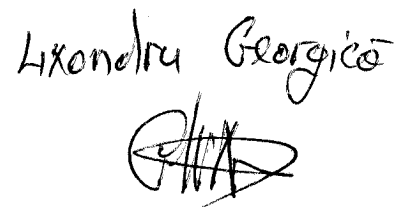 Lixandru Georgică